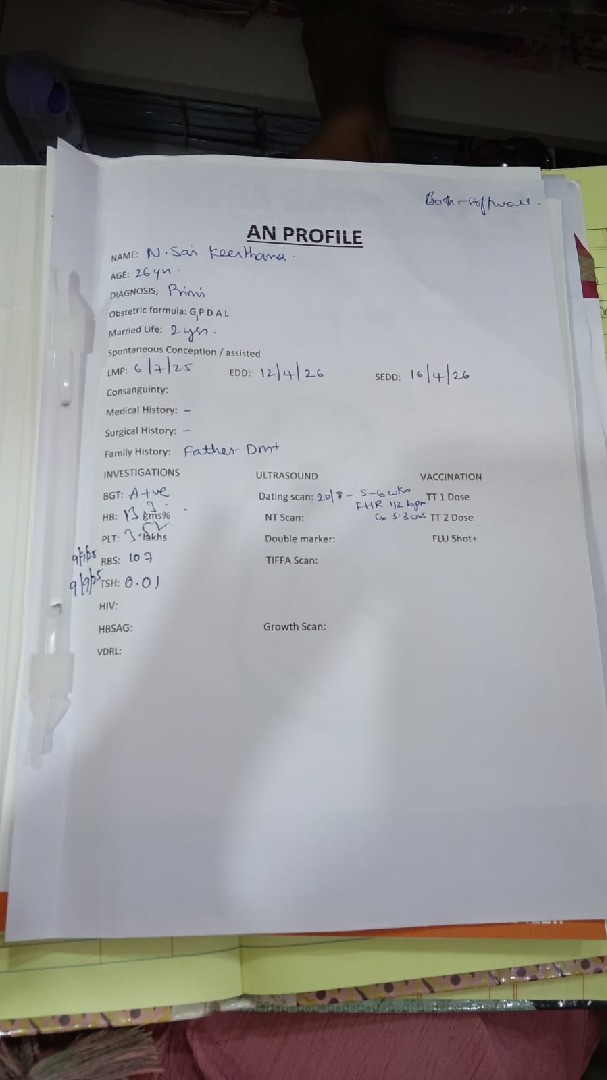 Both - software.
AN PROFILE
NAME: N. Sai Keerthana.
AGE: 26 yr.
DIAGNOSIS: Primi
Obstetric formula: G1 P D A L
Married Life: 2 yrs.
Spontaneous Conception / assisted
LMP: 6/7/25 EDD: 12/4/26 SEDD: 16/4/26
Consanguinty:
Medical History: -
Surgical History: -
Family History: Father Dm+
INVESTIGATIONS ULTRASOUND VACCINATION
BGT: A+ve Dating scan: 20/8 - 5-6 wks TT 1 Dose
FHR 112 bpm
HB: 13.7 gms% NT Scan: 5.3 cms TT 2 Dose
PLT: 3.52 lakhs Double marker: FLU Shot+
9/9/25 RBS: 107 TIFFA Scan:
9/9/25 TSH: 0.01
HIV:
HBSAG: Growth Scan:
VDRL: